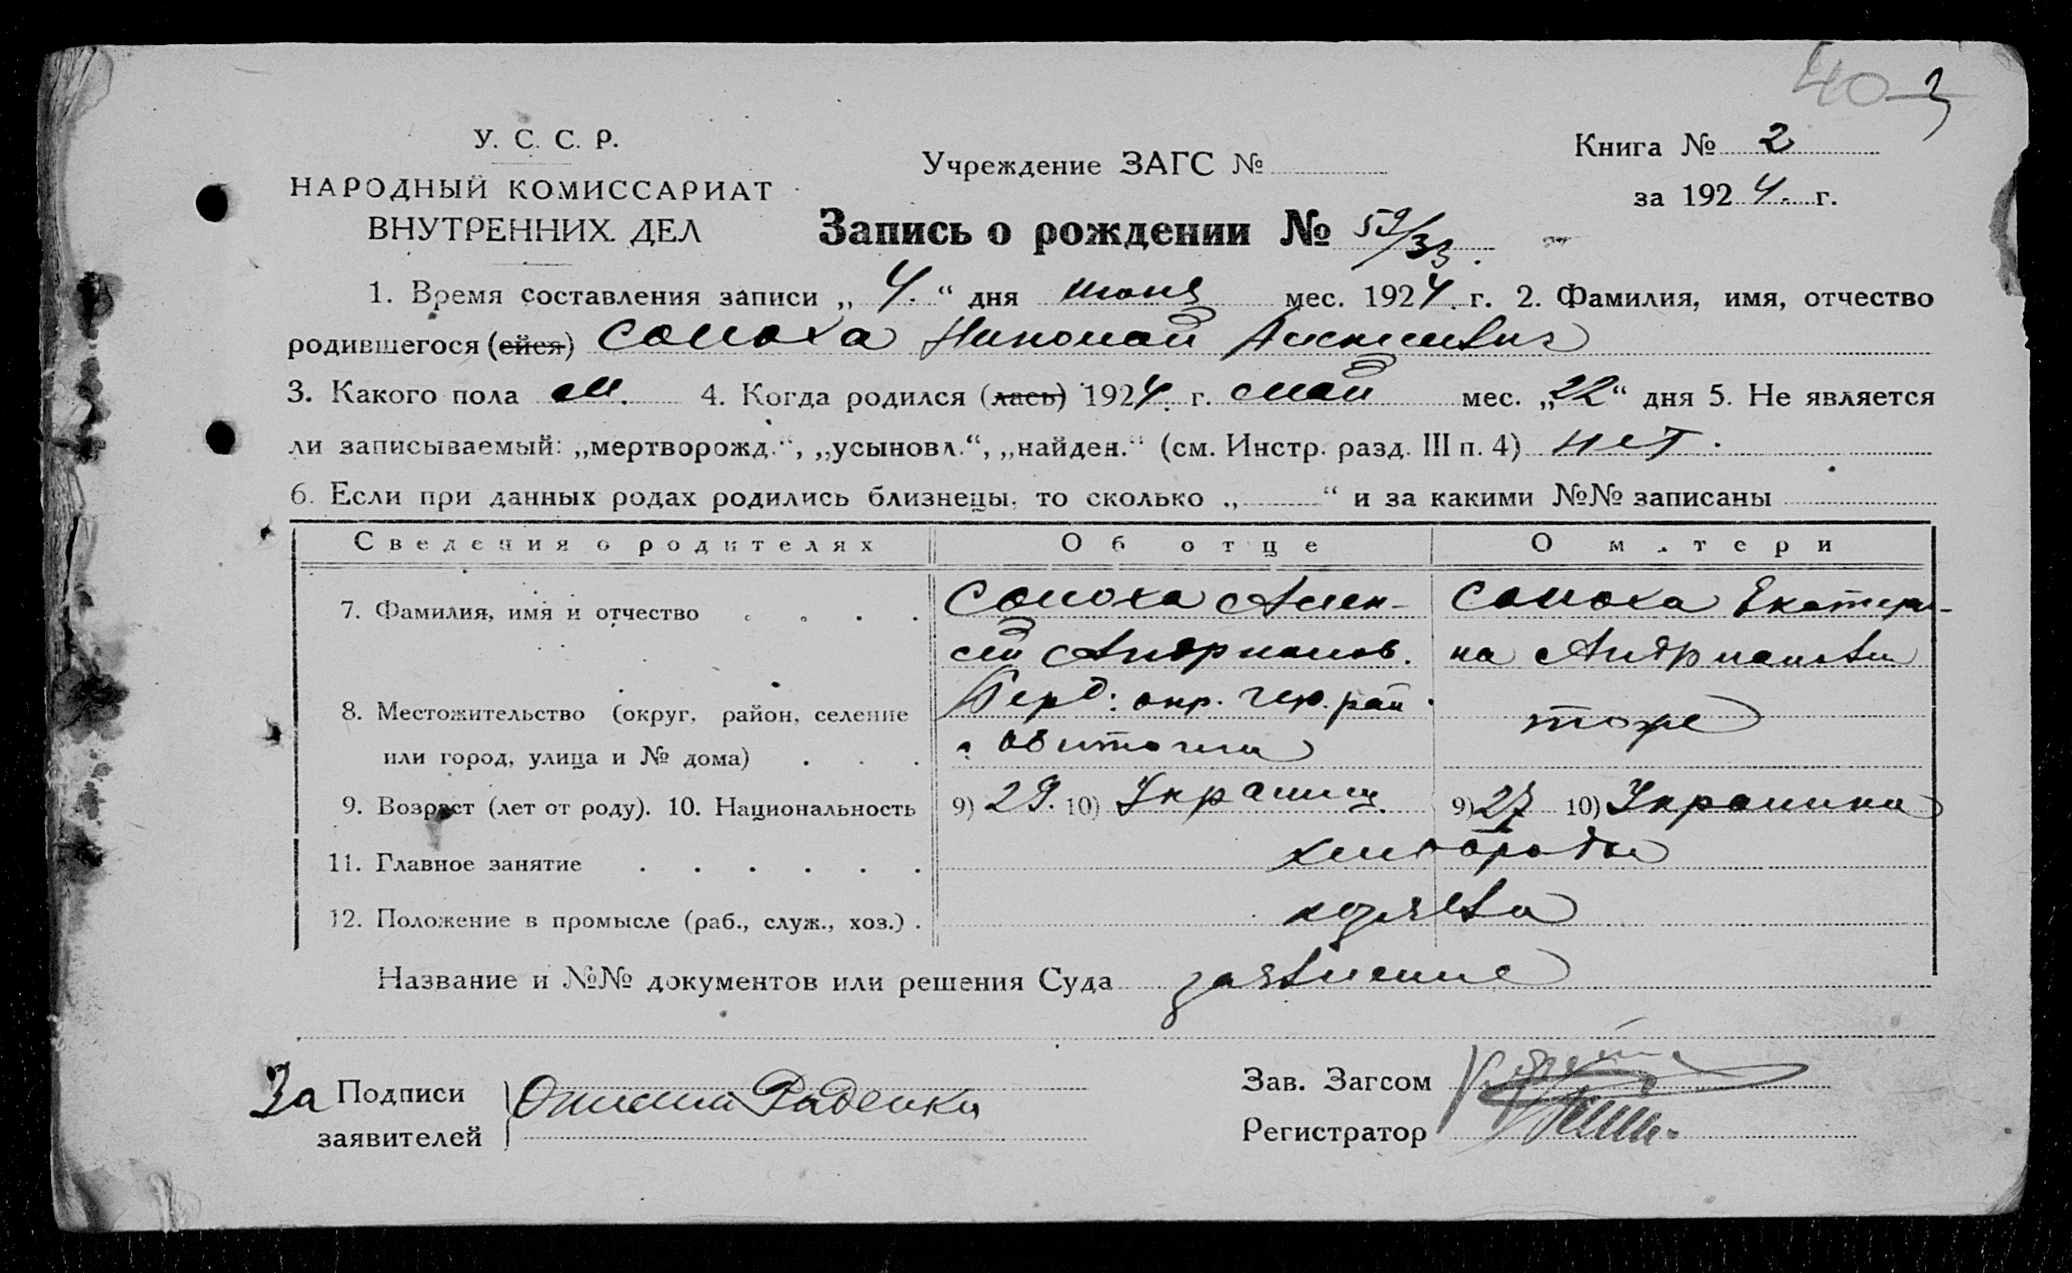 40 3
У. С. С. Р.
НАРОДНЫЙ КОМИССАРИАТ
ВНУТРЕННИХ ДЕЛ
Учреждение ЗАГС №
Книга № 2
за 1924. г.
Запись о рождении № 59/33.
1. Время составления записи „ 4. “ дня июня мес. 1924. г. 2. Фамилия, имя, отчество
родившегося (ейся) Солоха Николай Алексеевич
3. Какого пола м. 4. Когда родился (лась) 1924. г. май мес. „22“ дня 5. Не является
ли записываемый: „мертворожд.“, „усыновл.“, „найден.“ (см. Инстр. разд. III п. 4) нет.
6. Если при данных родах родились близнецы, то сколько „ “ и за какими №№ записаны
Сведения о родителях Об отце О матери
7. Фамилия, имя и отчество Солоха Алек- Солоха Екатери-
сей Андрианов. на Андриановна
8. Местожительство (округ, район, селение Берд. окр. рай. тоже
или город, улица и № дома)
9. Возраст (лет от роду). 10. Национальность 9) 29. 10) Украинец 9) 27 10) Украинка
11. Главное занятие хлебороды
12. Положение в промысле (раб., служ., хоз.) хозяева
Название и №№ документов или решения Суда заявление
За Подписи
заявителей
Зав. Загсом
Регистратор